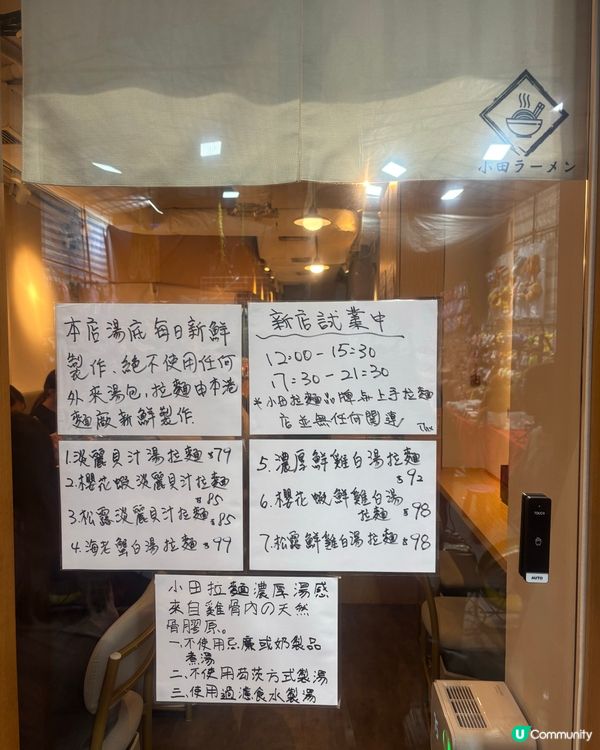 小田ラーメン
本店湯底每日新鮮
製作、絕不使用任何
外來湯包,拉麵由本港
麵廠新鮮製作.
新店試業中
12:00-15:30
17:30-21:30
*小田拉麵品牌與上手拉麵
店並無任何關連
Thx
1.淡麗貝汁湯拉麵$79
2.櫻花蝦淡麗貝汁拉麵
$85
3.松露淡麗貝汁拉麵$85
4.海老蟹白湯拉麵$99
5.濃厚鮮雞白湯拉麵
$92
6.櫻花蝦鮮雞白湯
拉麵$98
7.松露鮮雞白湯拉麵$98
小田拉麵濃厚湯感
來自雞骨內の天然
骨膠原。
一.不使用忌廉或奶製品
煮湯
二.不使用芡茨方式製湯
三.使用過濾食水製湯
TOUCH
AUTO
U Community